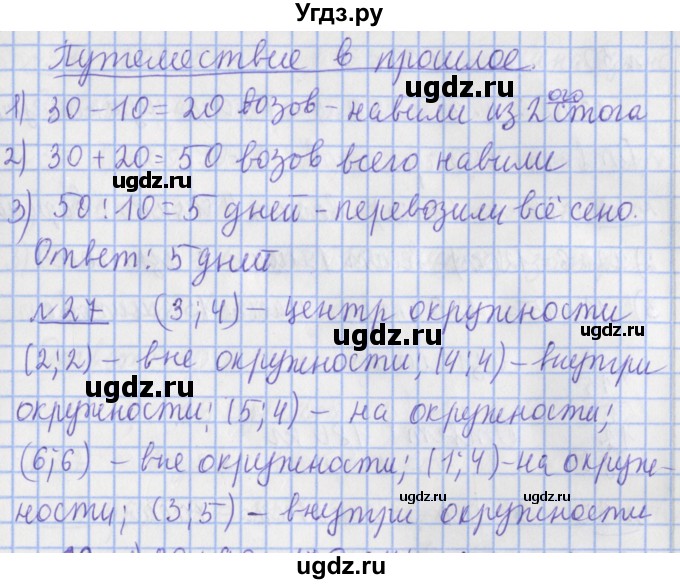 Угдз.ру
Путешествие в прошлое.
1) 30 - 10 = 20 возов - навили из 2ого стога
2) 30 + 20 = 50 возов всего навили
3) 50 : 10 = 5 дней - перевозили всё сено.
Ответ: 5 дней
№27 (3; 4) - центр окружности
(2; 2) - вне окружности; (4; 4) - внутри
окружности; (5; 4) - на окружности;
(6; 6) - вне окружности; (1; 4) - на окруж-
ности; (3; 5) - внутри окружности
gdz.ru
gdz.ru
gdz.ru
gdz.ru
gdz.ru
gdz.ru
gdz.ru
gdz.ru
gdz.ru